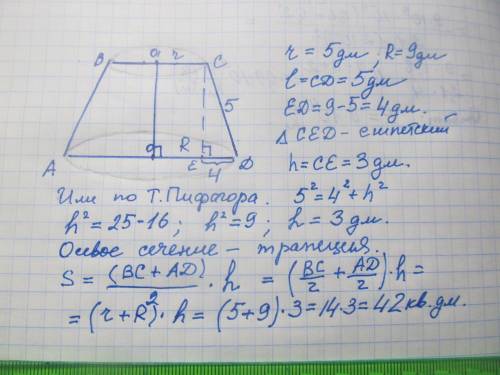 B O r C
5
A O R E D
4
r = 5дм, R = 9дм
l = CD = 5дм
ED = 9-5 = 4дм.
△ CED - египетский
h = CE = 3дм.
Или по Т. Пифагора. 5² = 4² + h²
h² = 25-16; h² = 9; h = 3дм.
Осевое сечение - трапеция.
S = (BC + AD)/2 · h = (BC/2 + AD/2) · h =
= (r + R) · h = (5+9) · 3 = 14·3 = 42 кв. дм.